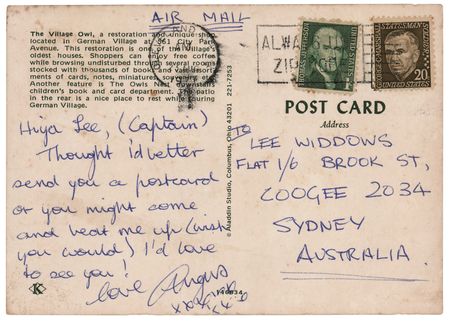 AIR MAIL
The Village Owl, a restoration and unique shop
located in German Village at 961 City Park
Avenue. This restoration is one of the village's
oldest houses. Shoppers can enjoy free coffee
while browsing undisturbed through several rooms
stocked with thousands of books and vast assort-
ments of cards, notes, miniatures and souvenirs.
Another feature is The Owls Nest
children's book and card department. The patio
in the rear is a nice place to rest while touring
German Village.
© Aladdin Studio, Columbus, Ohio 43201 221-7253
ALWAYS USE
ZIP CODE
STATESMAN
20
POST CARD
Address
Hiya Lee, (Captain)
Thought I'd better
send you a postcard
or you might come
and beat me up (wish
you would) I'd love
to see you!
Love Angus
To
LEE WIDDOWS
FLAT 1/6 BROOK ST,
COOGEE 2034
SYDNEY
AUSTRALIA.
K